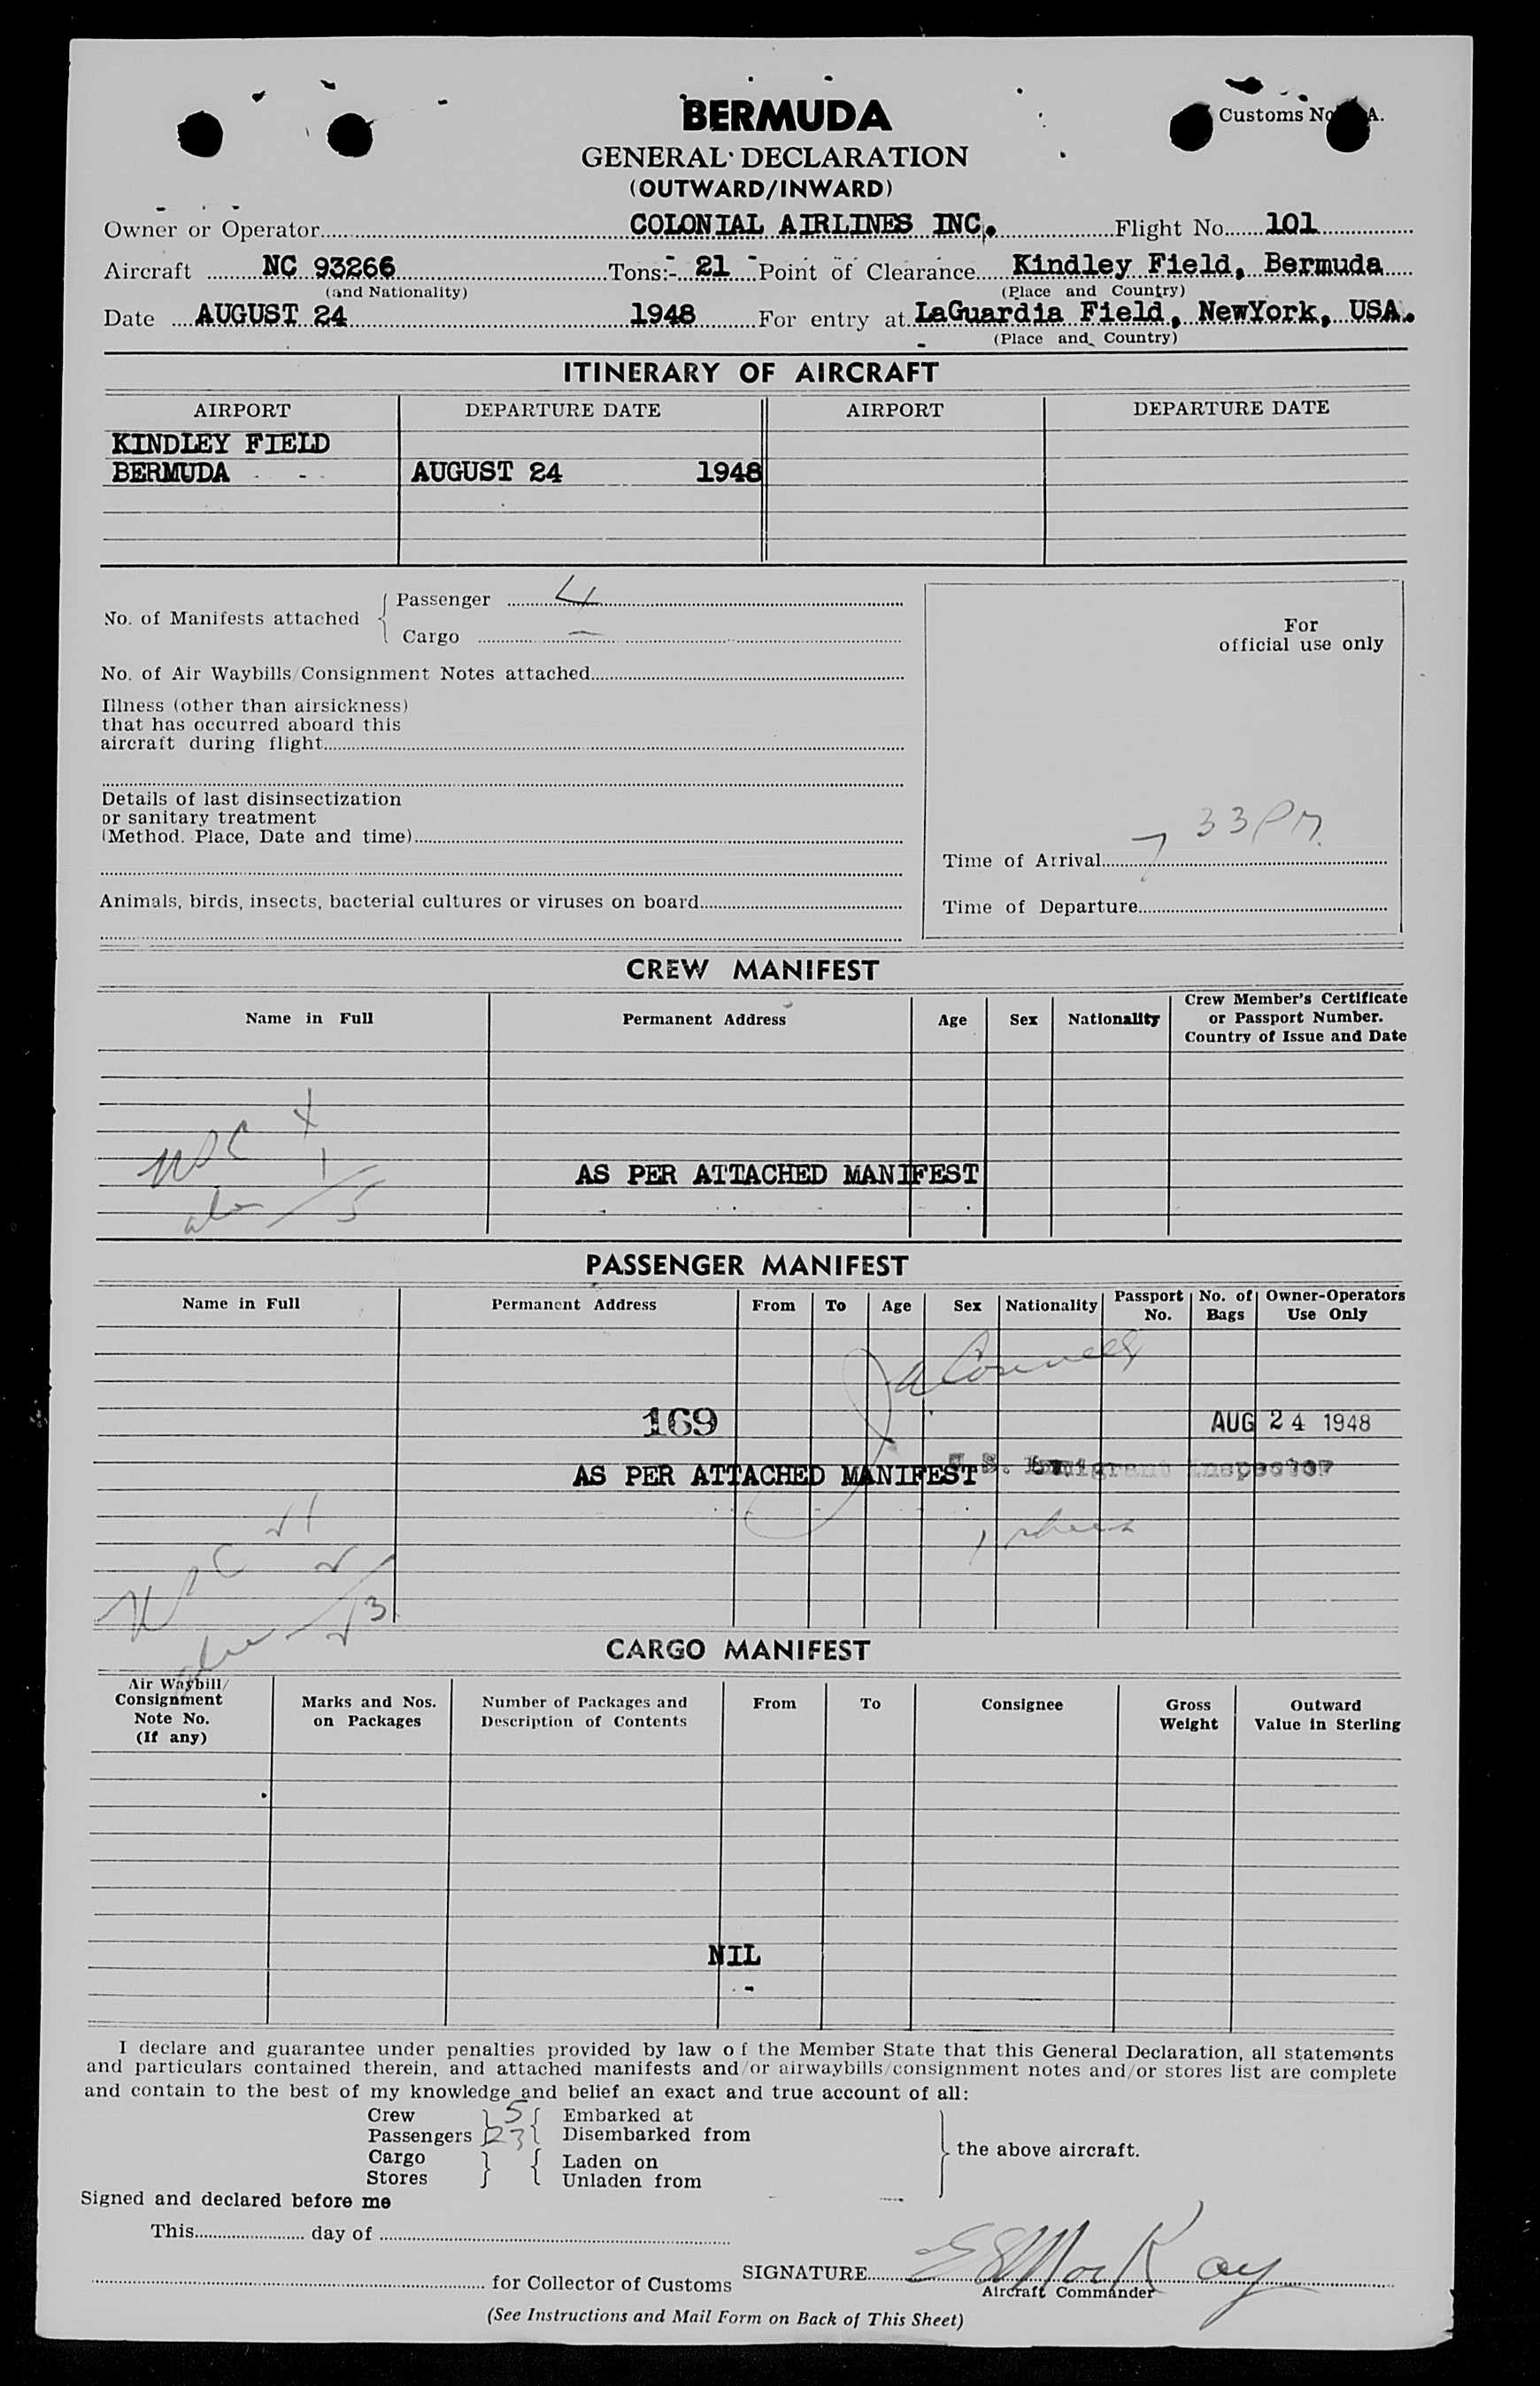 BERMUDA
Customs No. A.
GENERAL DECLARATION
(OUTWARD/INWARD)
Owner or Operator COLONIAL AIRLINES INC. Flight No. 101
Aircraft NC 93266 Tons:- 21 Point of Clearance Kindley Field, Bermuda
(and Nationality) (Place and Country)
Date AUGUST 24 1948 For entry at LaGuardia Field, NewYork, USA.
(Place and Country)
ITINERARY OF AIRCRAFT
AIRPORT DEPARTURE DATE AIRPORT DEPARTURE DATE
KINDLEY FIELD
BERMUDA AUGUST 24 1948
No. of Manifests attached
Passenger 4
Cargo —
For
official use only
No. of Air Waybills/Consignment Notes attached
Illness (other than airsickness)
that has occurred aboard this
aircraft during flight
Details of last disinsectization
or sanitary treatment
(Method. Place, Date and time)
Time of Arrival 7 33 PM
Animals, birds, insects, bacterial cultures or viruses on board
Time of Departure
CREW MANIFEST
Name in Full Permanent Address Age Sex Nationality Crew Member's Certificate
or Passport Number.
Country of Issue and Date
AS PER ATTACHED MANIFEST
5
PASSENGER MANIFEST
Name in Full Permanent Address From To Age Sex Nationality Passport No. No. of Bags Owner-Operators Use Only
169
AUG 24 1948
AS PER ATTACHED MANIFEST
U.S. Immigrant Inspector
CARGO MANIFEST
Air Waybill/
Consignment
Note No.
(If any)
Marks and Nos.
on Packages
Number of Packages and
Description of Contents
From
To
Consignee
Gross
Weight
Outward
Value in Sterling
NIL
I declare and guarantee under penalties provided by law of the Member State that this General Declaration, all statements
and particulars contained therein, and attached manifests and/or airwaybills/consignment notes and/or stores list are complete
and contain to the best of my knowledge and belief an exact and true account of all:
Crew 5 Embarked at
Passengers 23 Disembarked from
the above aircraft.
Cargo Laden on
Stores Unladen from
Signed and declared before me
This day of
for Collector of Customs
SIGNATURE
Aircraft Commander
(See Instructions and Mail Form on Back of This Sheet)